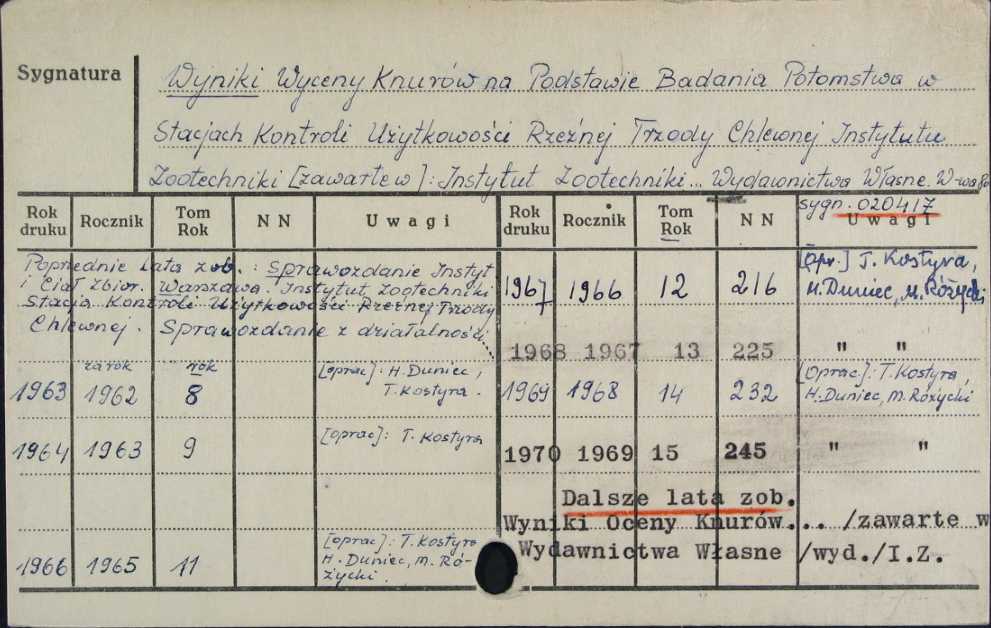 Sygnatura
Wyniki Wyceny Knurów na Podstawie Badania Potomstwa w
Stacjach Kontroli Użytkowości Rzeźnej Trzody Chlewnej Instytutu
Zootechniki [zawarte w]: Instytut Zootechniki... Wydawnictwa Własne. W-wa
sygn. 020417
Rok druku Rocznik Tom Rok N N Uwagi Rok druku Rocznik Tom Rok N N Uwagi
Poprzednie lata zob.: Sprawozdanie Instyt
i Ciał Zbior. Warszawa. Instytut Zootechniki
Stacja Kontroli Użytkowości Rzeźnej Trzody
Chlewnej. Sprawozdanie z działalności...
za rok rok
1963 1962 8 [oprac]: H. Duniec, T. Kostyra.
1964 1963 9 [oprac]: T. Kostyra
1966 1965 11 [oprac]: T. Kostyra H. Duniec, M. Ró-życki.
1967 1966 12 216 [opr.] T. Kostyra, H. Duniec, M. Różycki
1968 1967 13 225 " "
1969 1968 14 232 [oprac]: T. Kostyra, H. Duniec, M. Różycki
1970 1969 15 245 " "
Dalsze lata zob.
Wyniki Oceny Knurów... /zawarte w
Wydawnictwa Własne /wyd./I.Z.